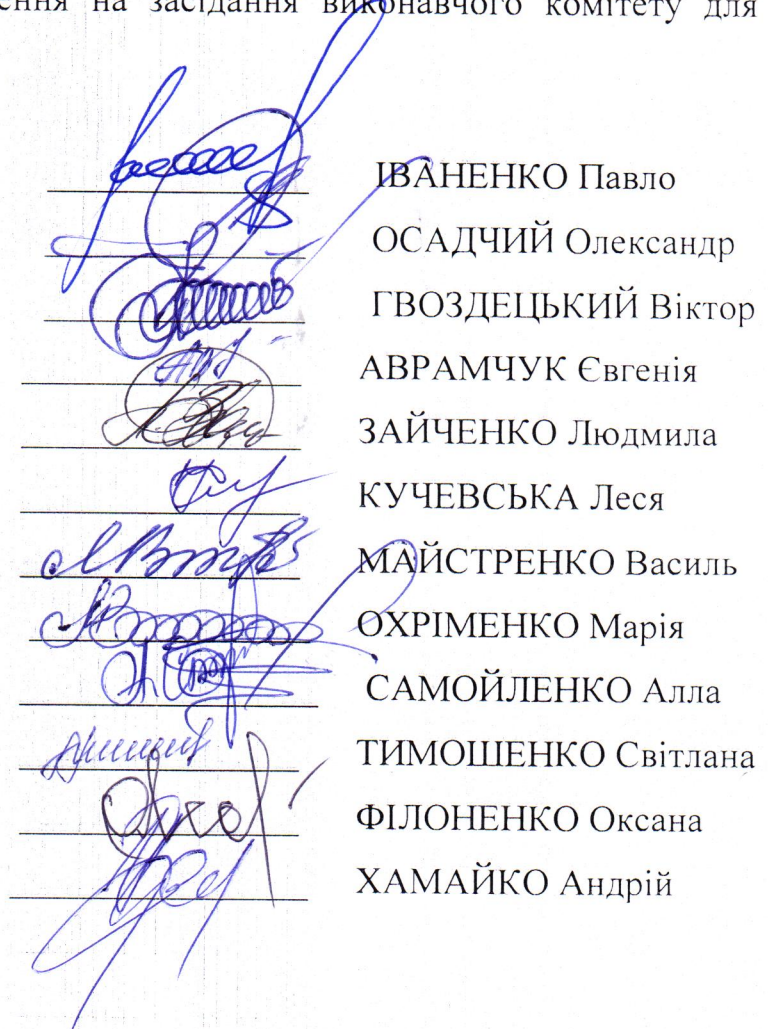 ення на засідання виконавчого комітету для
ІВАНЕНКО Павло
ОСАДЧИЙ Олександр
ГВОЗДЕЦЬКИЙ Віктор
АВРАМЧУК Євгенія
ЗАЙЧЕНКО Людмила
КУЧЕВСЬКА Леся
МАЙСТРЕНКО Василь
ОХРІМЕНКО Марія
САМОЙЛЕНКО Алла
ТИМОШЕНКО Світлана
ФІЛОНЕНКО Оксана
ХАМАЙКО Андрій